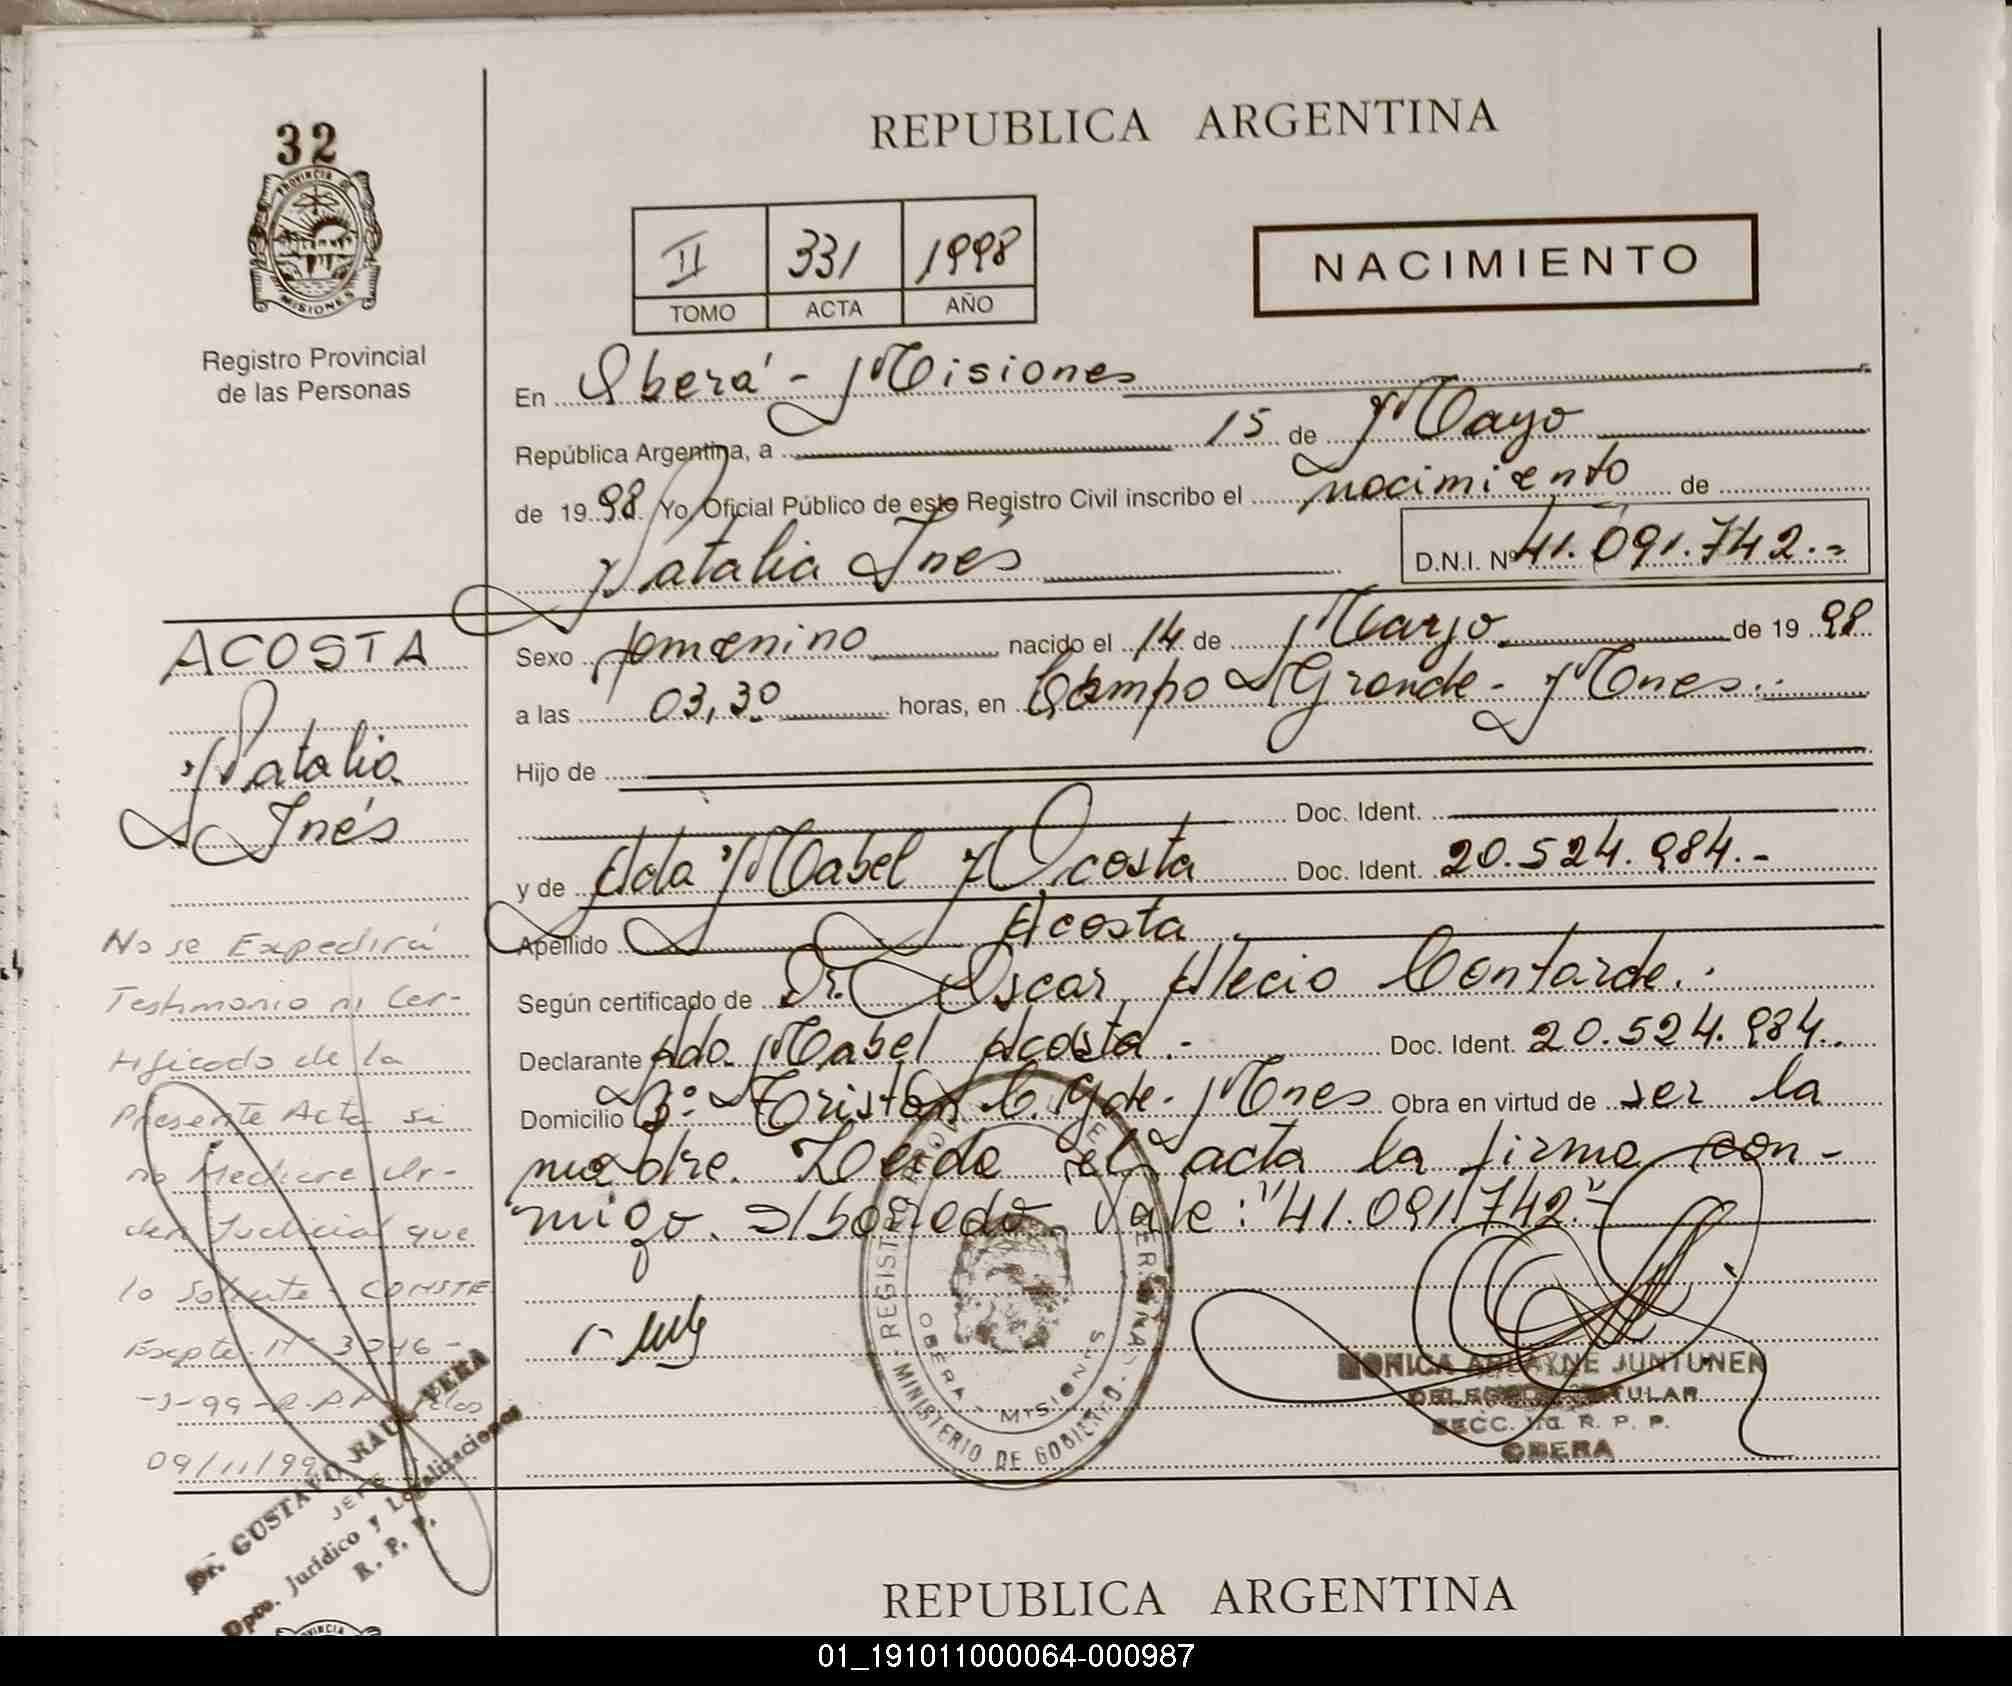 32
PROVINCIA DE
MISIONES
Registro Provincial
de las Personas
REPUBLICA ARGENTINA
II 331 1998
TOMO ACTA AÑO
NACIMIENTO
En Oberá - Misiones
República Argentina, a 15 de Mayo
de 1998 Yo, Oficial Público de este Registro Civil inscribo el nacimiento de
Natalia Inés D.N.I. Nº 41.091.742.-
Sexo femenino nacido el 14 de Marzo de 1998
a las 03,30 horas, en Campo Grande - Mnes.-
Hijo de
Doc. Ident.
y de Ada Mabel Acosta Doc. Ident. 20.524.984.-
Apellido Acosta
Según certificado de Dr. Oscar Alecio Contarde.-
Declarante Ada Mabel Acosta.- Doc. Ident. 20.524.984.
Domicilio Bº Tristán C. Gde. Mnes Obra en virtud de ser la
madre. Leída el acta la firma con-
migo. S/borrado Vale: "41.091.742."-
ACOSTA
Natalia
Inés
No se Expedirá
Testimonio ni Cer-
tificado de la
Presente Acta si
no Mediare Or-
den Judicial que
lo Solicite - CONSTE
Expte. Nº 3046-
-J-99-R.P.P.
09/11/99
Dr. GUSTAVO RAUL VERA
JEFE
Dpto. Jurídico y Legalizaciones
R. P. P.
MINISTERIO DE GOBIERNO
OBERA - MISIONES
MONICA ARLAYNE JUNTUNEN
DELEGADA TITULAR
SECC. R. P. P.
OBERA
REPUBLICA ARGENTINA
01_191011000064-000987